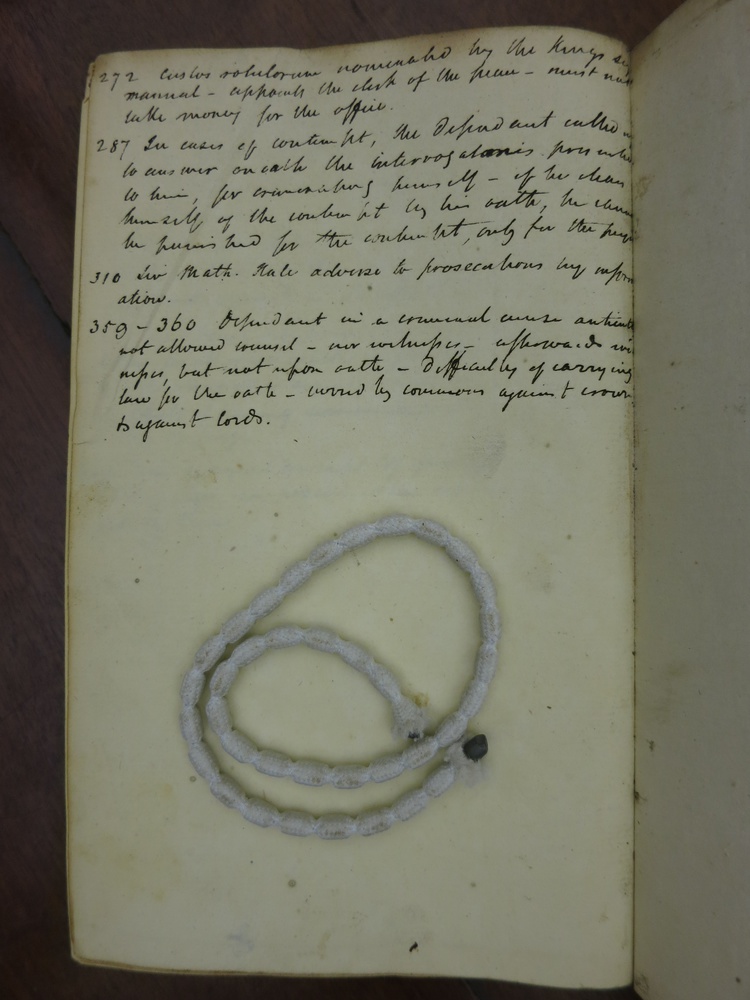 272 Custos rotulorum nominated by the Kings
manual - appoints the clerk of the peace - must not
take money for the office.
287 In cases of contempt, the Defendant called
to answer on oath the interrogatories presented
to him, for criminating himself - if he clears
himself of the contempt by his oath, he cannot
be punished for the contempt, only for the
310 Sir Math. Hale adverse to prosecutions by inform
ation.
359 - 360 Defendant in a criminal cause anciently
not allowed counsel - nor witnesses - afterwards wit
nesses, but not upon oath - Difficulty of carrying
law for the oath - carried by commons against crown
& against lords.